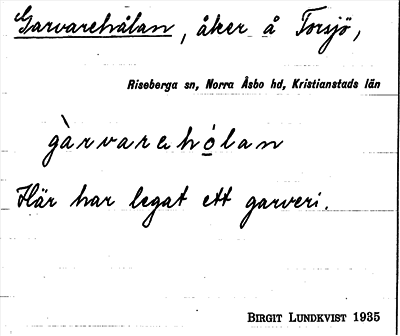 Garvarehålan, åker å Torsjö,
Riseberga sn, Norra Åsbo hd, Kristianstads län
gàrvarehólan
Här har legat ett garveri.
BIRGIT LUNDKVIST 1935